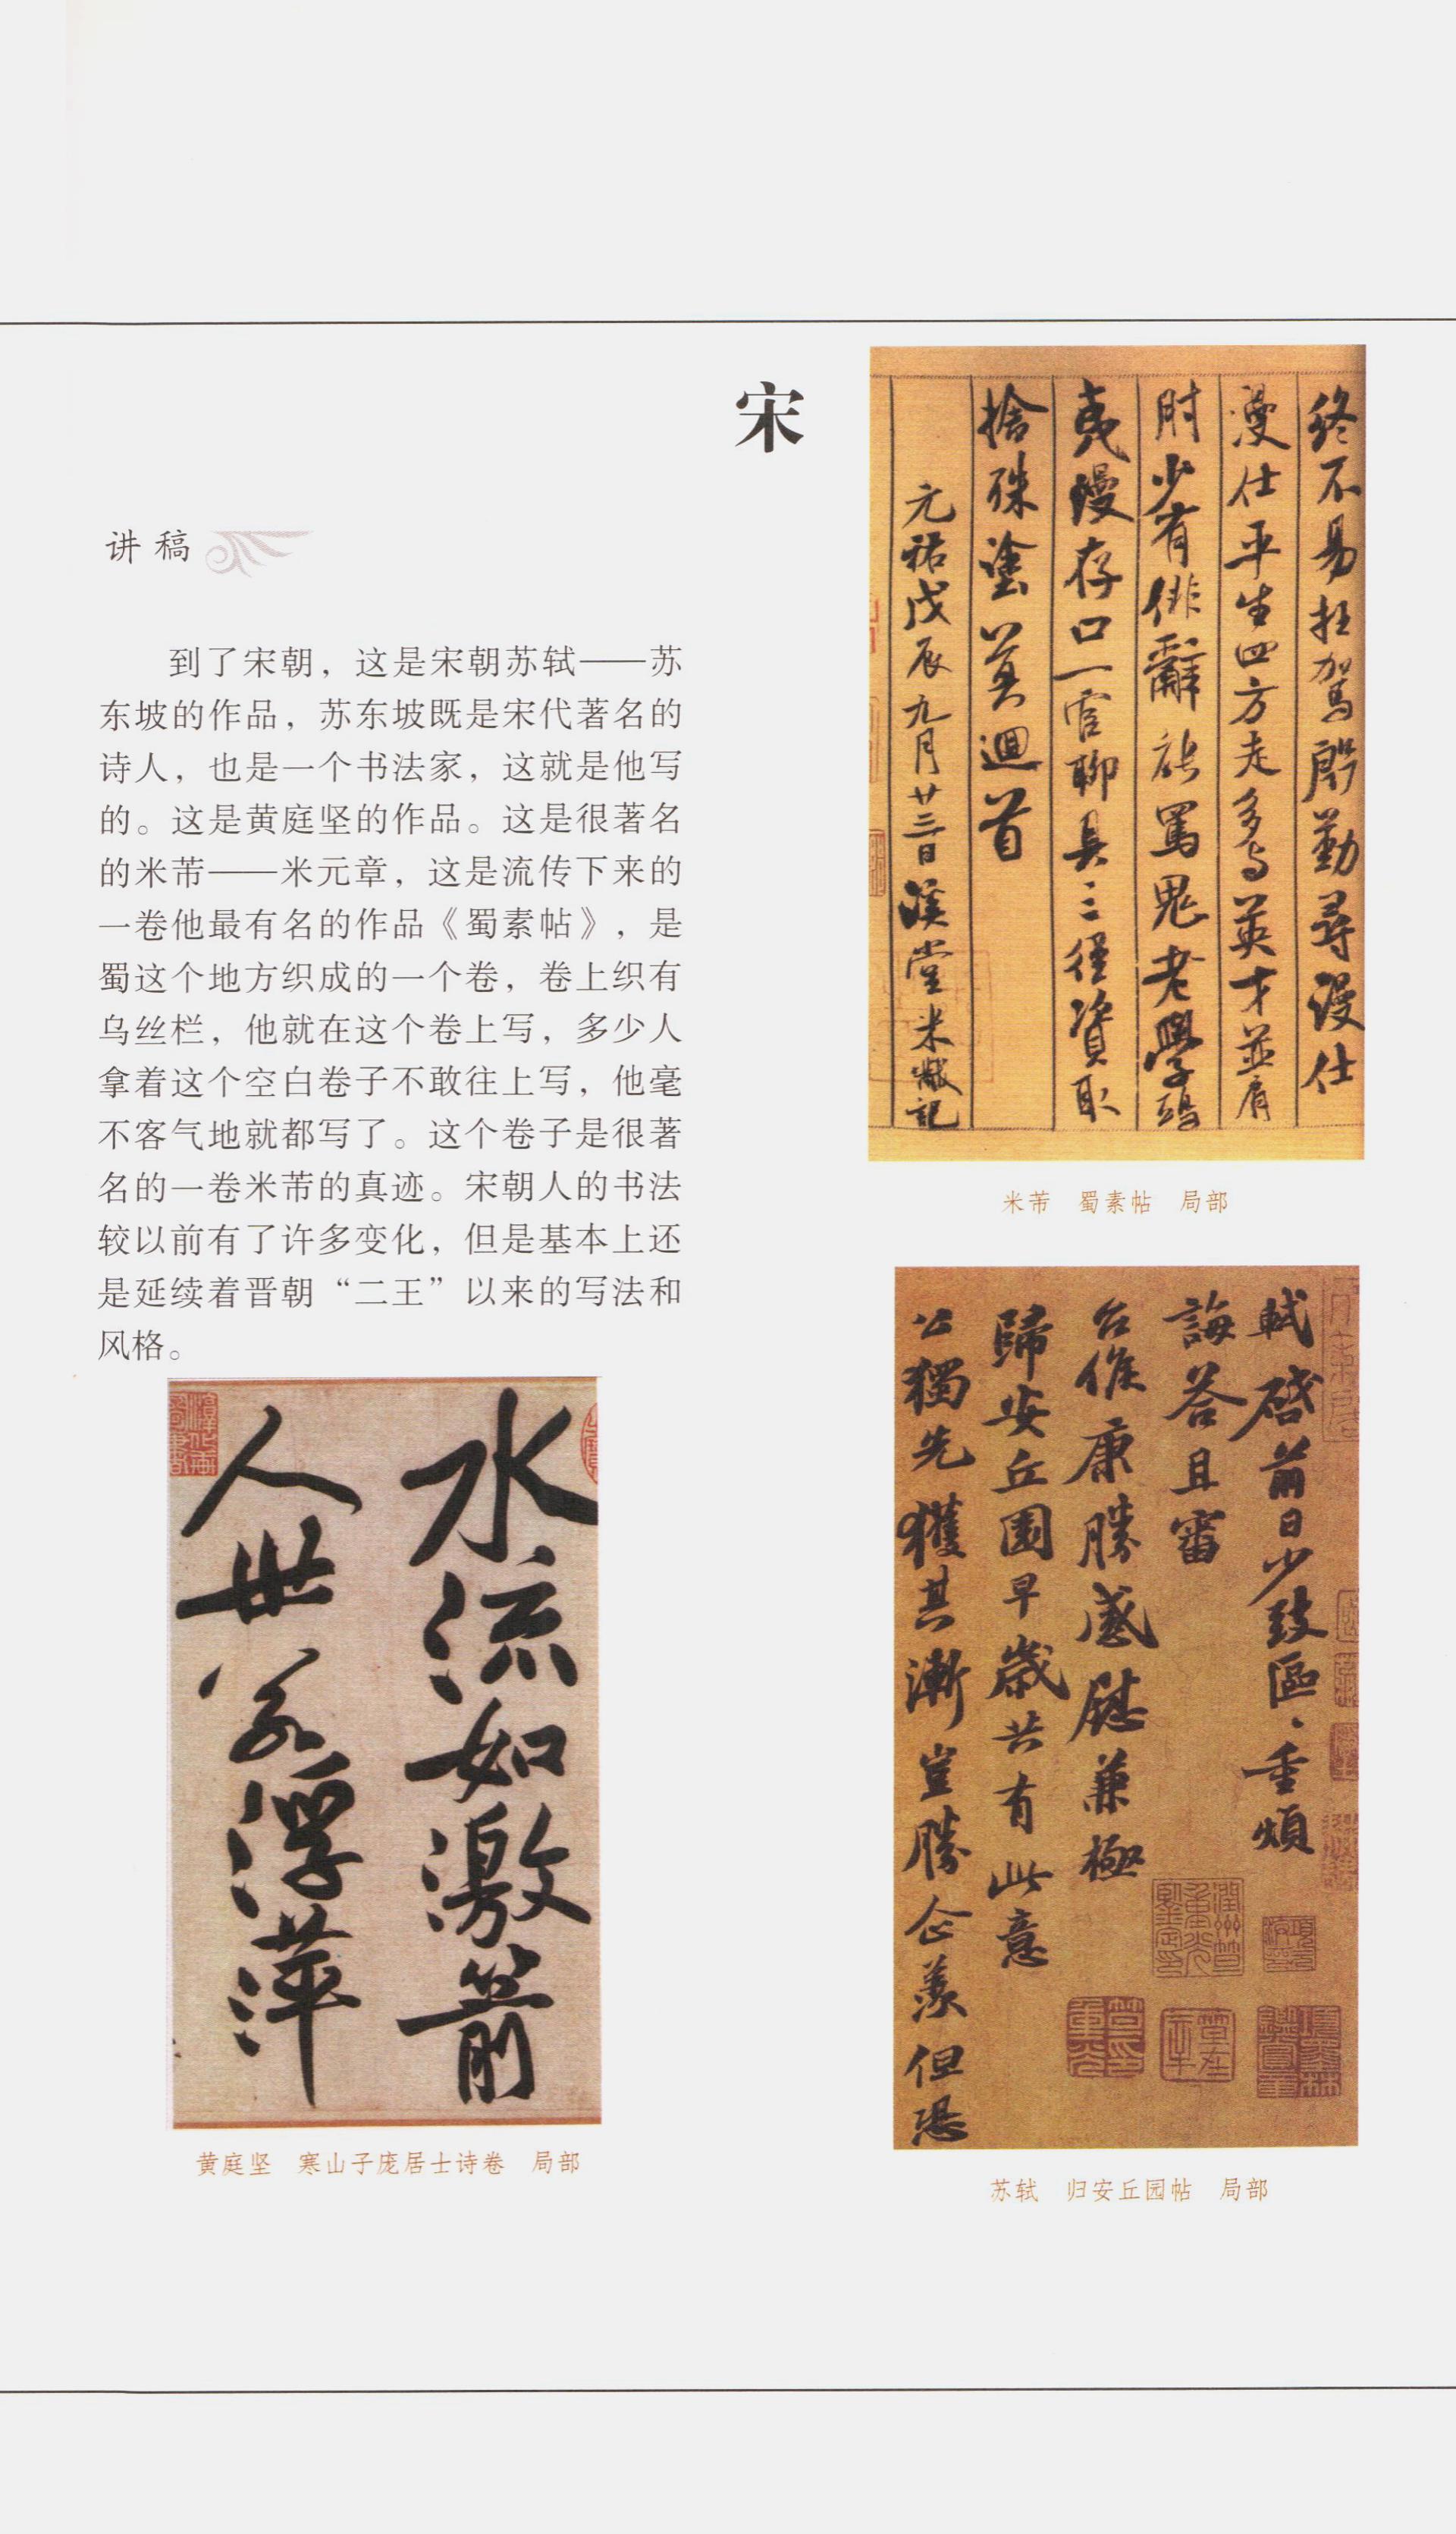 宋
讲稿
到了宋朝，这是宋朝苏轼——苏
东坡的作品，苏东坡既是宋代著名的
诗人，也是一个书法家，这就是他写
的。这是黄庭坚的作品。这是很著名
的米芾——米元章，这是流传下来的
一卷他最有名的作品《蜀素帖》，是
蜀这个地方织成的一个卷，卷上织有
乌丝栏，他就在这个卷上写，多少人
拿着这个空白卷子不敢往上写，他毫
不客气地就都写了。这个卷子是很著
名的一卷米芾的真迹。宋朝人的书法
较以前有了许多变化，但是基本上还
是延续着晋朝“二王”以来的写法和
风格。
水流如激箭
人世若浮萍
黄庭坚　寒山子庞居士诗卷　局部
终不易枉驾殷勤寻漫仕
漫仕平生四方走多与英才並肩
肘少有俳辭能罵鬼老學鴟
夷漫存口一官聊具三徑資取
捨殊塗莫迴首
元祐戊辰九月廿三日溪堂米黻記
米芾　蜀素帖　局部
軾啓前日少致區、重煩
誨答且審
台候康勝感慰兼極
歸安丘園早歲共有此意
公獨先獲其漸豈勝企羨但恐
苏轼　归安丘园帖　局部